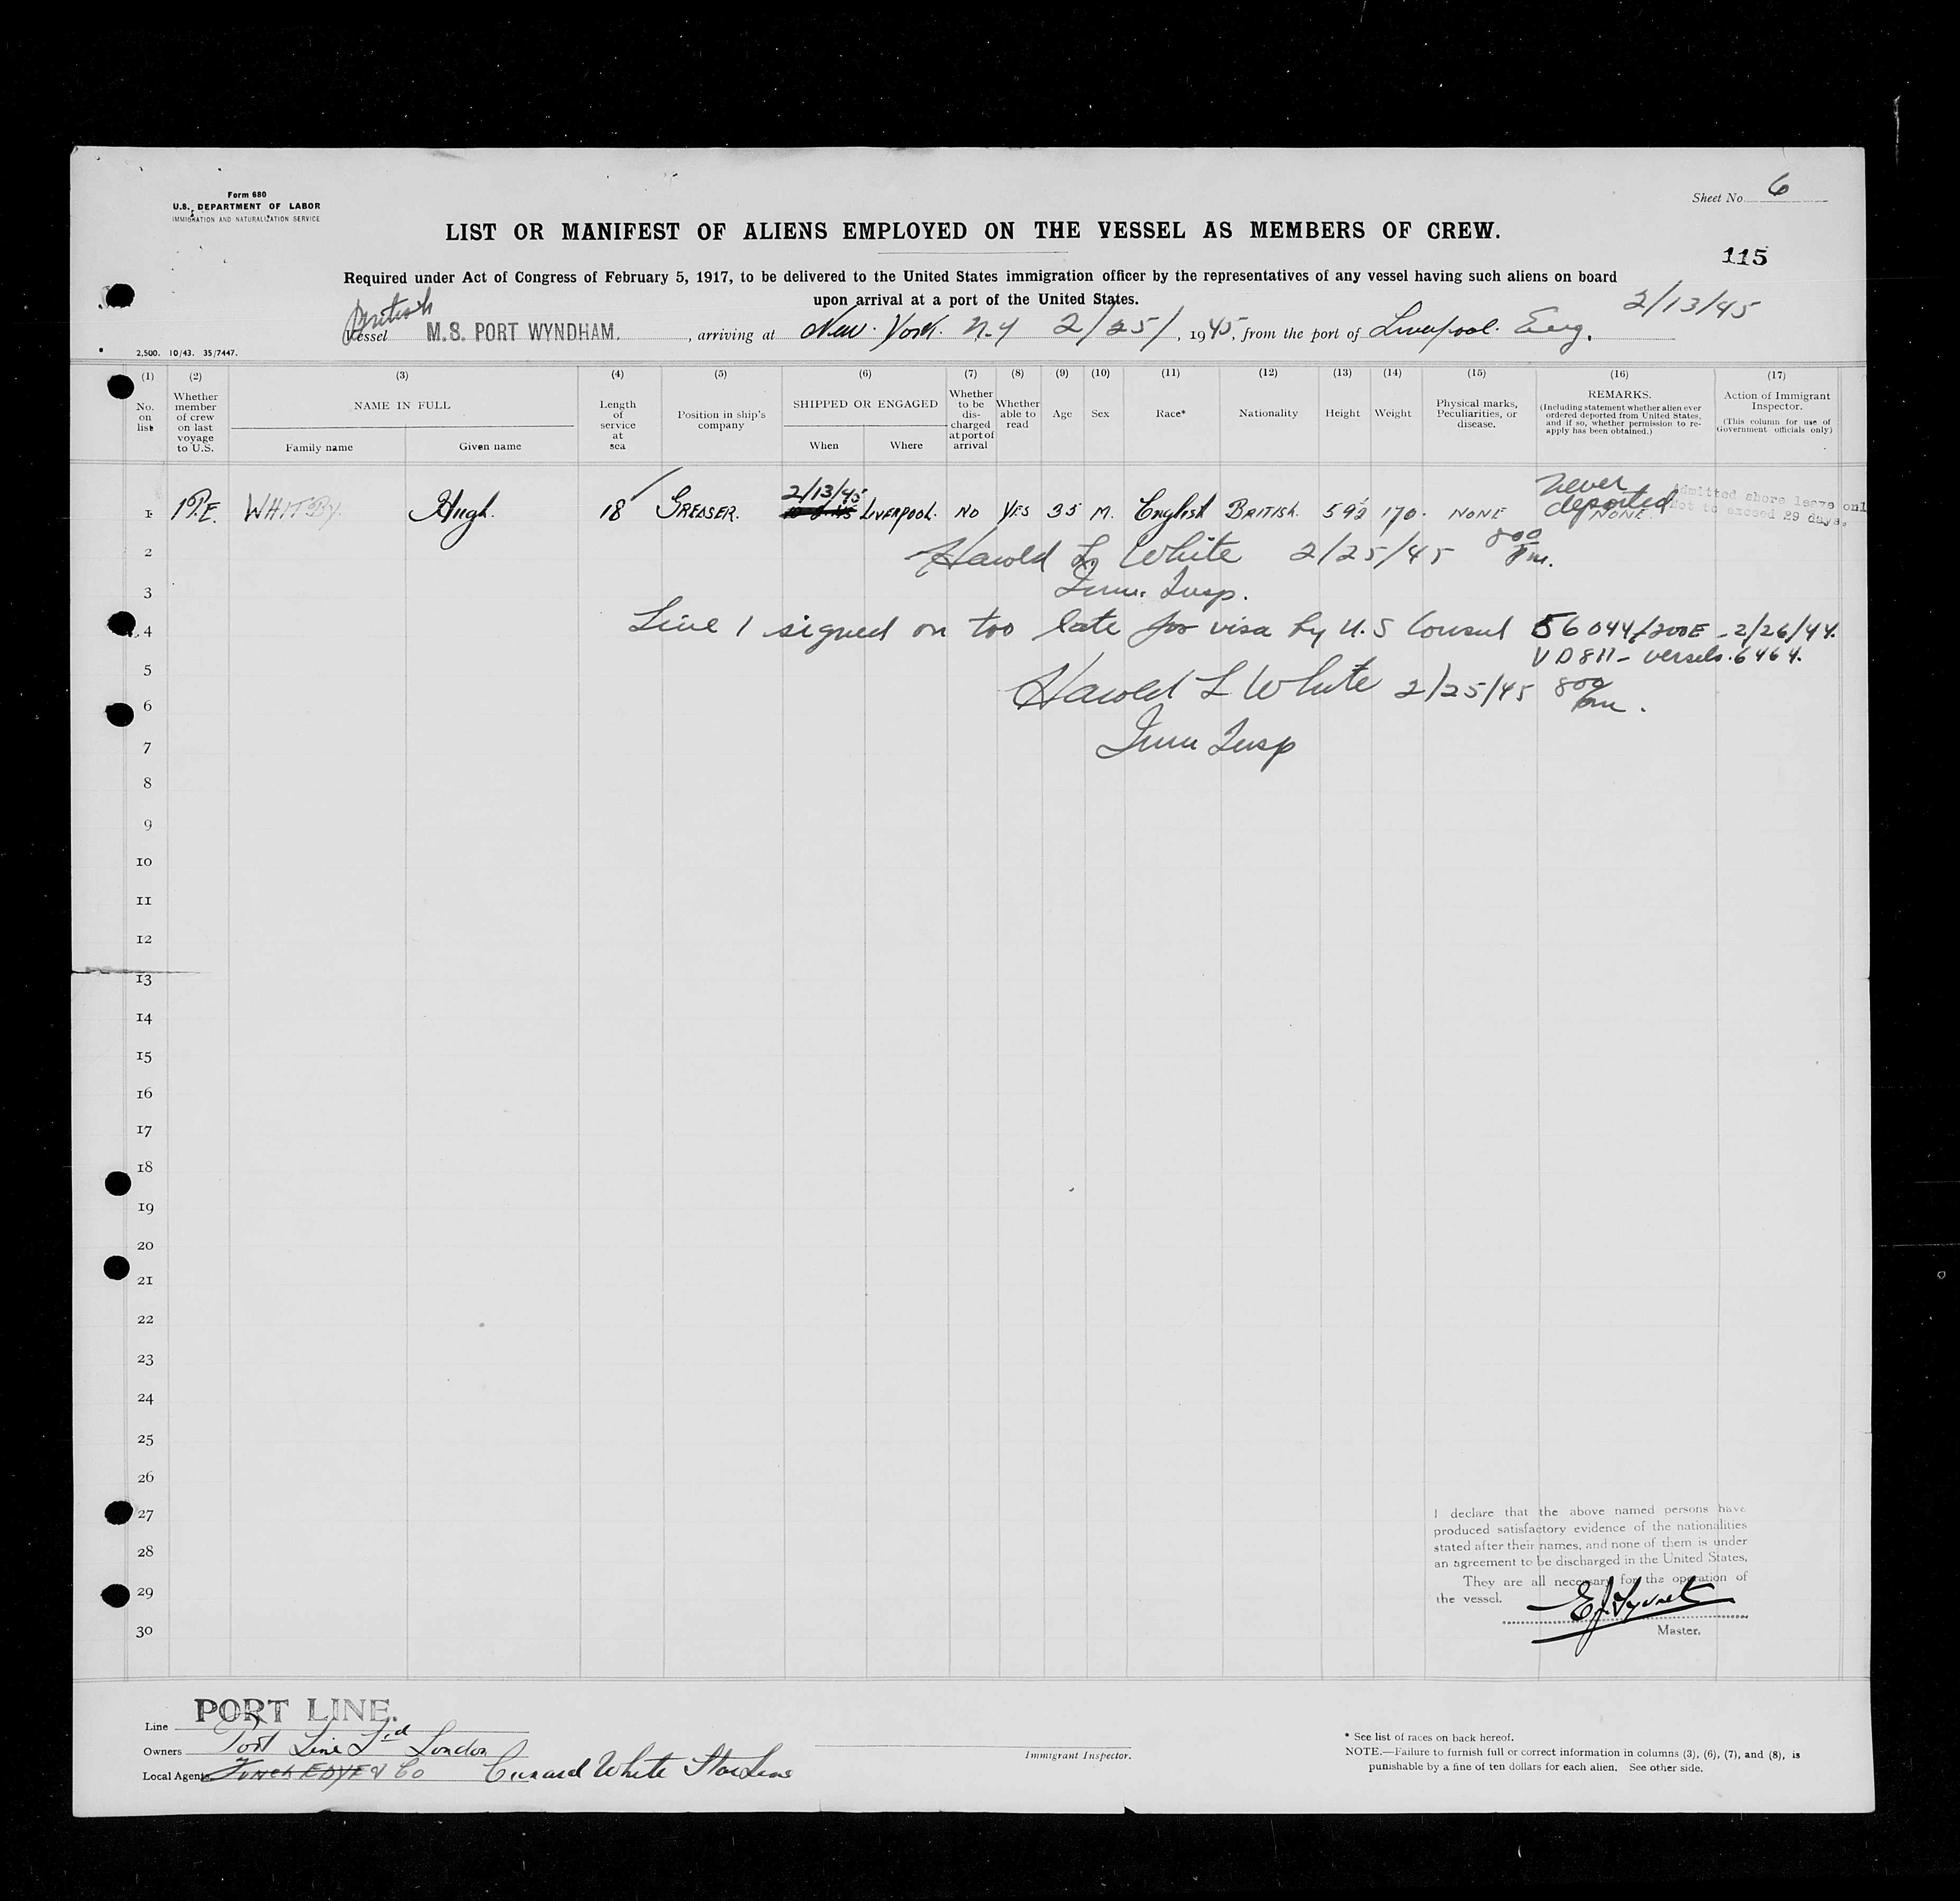 Form 680
U.S. DEPARTMENT OF LABOR
IMMIGRATION AND NATURALIZATION SERVICE
Sheet No. 6
LIST OR MANIFEST OF ALIENS EMPLOYED ON THE VESSEL AS MEMBERS OF CREW.
115
Required under Act of Congress of February 5, 1917, to be delivered to the United States immigration officer by the representatives of any vessel having such aliens on board
upon arrival at a port of the United States.
2/13/45
British
Vessel M.S. PORT WYNDHAM. , arriving at New York. N.Y 2/25/ , 1945, from the port of Liverpool. Eng.
2,500. 10/43. 35/7447.
(1) (2) (3) (4) (5) (6) (7) (8) (9) (10) (11) (12) (13) (14) (15) (16) (17)
No. on list
Whether member of crew on last voyage to U.S.
NAME IN FULL
Family name
Given name
Length of service at sea
Position in ship's company
SHIPPED OR ENGAGED
When
Where
Whether to be discharged at port of arrival
Whether able to read
Age
Sex
Race*
Nationality
Height
Weight
Physical marks, Peculiarities, or disease.
REMARKS.
(Including statement whether alien ever
ordered deported from United States,
and if so, whether permission to re-
apply has been obtained.)
Action of Immigrant
Inspector.
(This column for use of
Government officials only)
2/13/45
never
deported
1 P.E. WHITBY. Hugh. 18 GREASER. LIVERPOOL. NO YES 35 M. English BRITISH. 170. NONE NONE
Admitted shore leave only
Not to exceed 29 days.
2 Harold L White 2/25/45 800 pm.
3 Imm. Insp.
4 Line 1 signed on too late for visa by U.S Consul 56044/200E - 2/26/44.
VD811 - vessels. 6464.
5
Harold L White 2/25/45 800 pm.
6
7 Imm Insp
8
9
10
11
12
13
14
15
16
17
18
19
20
21
22
23
24
25
26
27
28
29
30
I declare that the above named persons have
produced satisfactory evidence of the nationalities
stated after their names, and none of them is under
an agreement to be discharged in the United States.
They are all necessary for the operation of
the vessel.
Master.
Line PORT LINE.
Owners Port Line Ltd London
Local Agents Funch EDYE & Co Cunard White Star Line
Immigrant Inspector.
* See list of races on back hereof.
NOTE.—Failure to furnish full or correct information in columns (3), (6), (7), and (8), is
punishable by a fine of ten dollars for each alien. See other side.